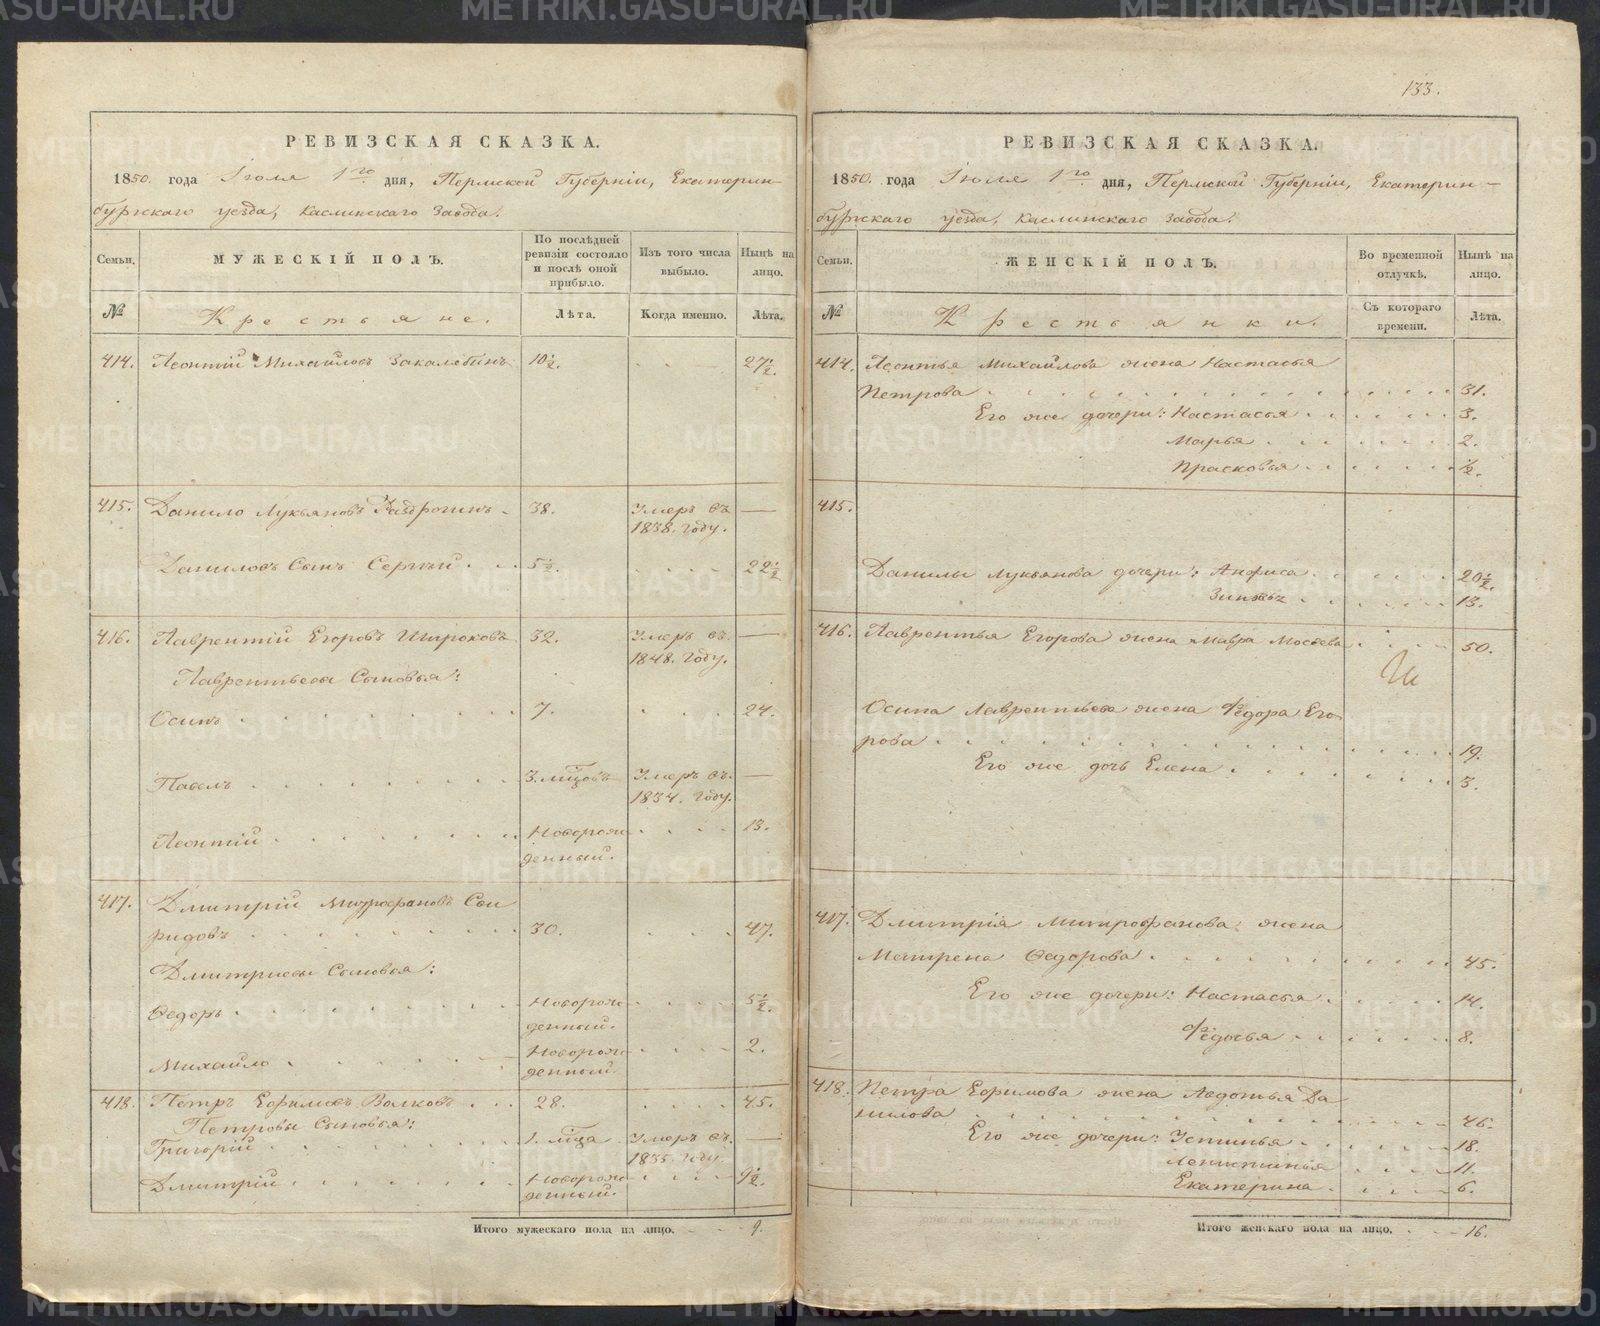 133.
РЕВИЗСКАЯ СКАЗКА.
1850. года Іюля 1го дня, Пермской Губерніи, Екатерин-
бургскаго уезда, Каслинскаго Завода.
Семьи. МУЖЕСКІЙ ПОЛЪ. По послѣдней ревизіи состояло и послѣ оной прибыло. Изъ того числа выбыло. Нынѣ на лицо.
№ Крестьяне. Лѣта. Когда именно. Лѣта.
414. Леонтій Михайловъ Закалябинъ 10½. 27½.
415. Данило Лукьяновъ 38. Умеръ въ —
1838. году.
Даниловъ Сынъ Сергѣй 5½. 22½
416. Лаврентій Егоровъ Широковъ 32. Умеръ въ —
1848. году.
Лаврентьевы Сыновья:
Осипъ 7. 24.
Павелъ 3. мцовъ Умеръ въ —
1834. году.
Леонтій Новорож- 13.
денный.
417. Дмитрій Митрофановъ Сви
ридовъ 30. 47.
Дмитриевы Сыновья:
Ѳедоръ Новорож- 5½.
денный.
Михайло Новорож- 2.
денный.
418. Петръ Ефимовъ Волковъ 28. 45.
Петровы Сыновья:
Григорій 1. мца Умеръ въ —
1835. году.
Дмитрій Новорож- 9½.
денный.
Итого мужескаго пола на лицо. 9.
РЕВИЗСКАЯ СКАЗКА.
1850. года Іюля 1го дня, Пермской Губерніи, Екатерин-
бургскаго уезда, Каслинскаго Завода.
Семьи. ЖЕНСКІЙ ПОЛЪ. Во временной отлучкѣ. Нынѣ на лицо.
№ Крестьянки. Съ котораго времени. Лѣта.
414. Леонтья Михайлова жена Настасья
Петрова 31.
Его же дочери: Настасья 3.
Марья 2.
Прасковья ½.
415.
Данилы Лукьянова дочери: Анфиса 20½.
13.
416. Лаврентья Егорова жена Мавра Мосеева 50.
Осипа Лаврентьева жена Ѳедора Его
рова 19.
Его же дочь Елена 3.
417. Дмитрія Митрофанова жена
Матрена Ѳедорова 45.
Его же дочери: Настасья 14.
Ѳедосья 8.
418. Петра Ефимова жена Авдотья Да
нилова 46.
Его же дочери: Устинья 18.
11.
Екатерина 6.
Итого женскаго пола на лицо. 16.
METRIKI.GASO-URAL.RU